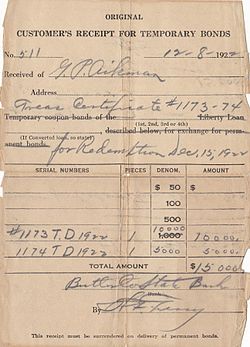 ORIGINAL
CUSTOMER'S RECEIPT FOR TEMPORARY BONDS
No. 511 12-8-1922
Received of G. P. Aikman
Address
Treas Certificate #1173-74
Temporary coupon bonds of the Liberty Loan
(1st, 2nd, 3rd or 4th)
(If Converted loan, so state) described below, for exchange for perm-
anent bonds. for Redemption Dec, 15, 1922
SERIAL NUMBERS PIECES DENOM. AMOUNT
$ 50 $
100
500
10000
#1173 T D 1922 1 1,000 10000
1174 T D 1922 1 5000 5000
TOTAL AMOUNT $15000
Butler Co State Bank
Bank
By
This receipt must be surrendered on delivery of permanent bonds.